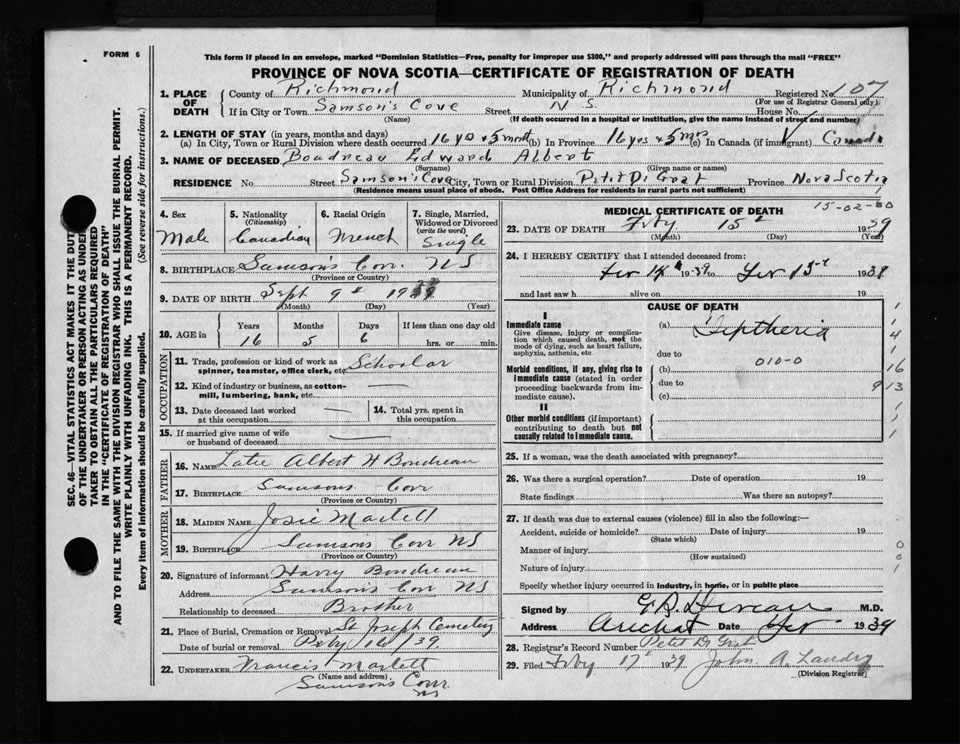 FORM 6
This form if placed in an envelope, marked "Dominion Statistics—Free, penalty for improper use $300," and properly addressed will pass through the mail "FREE"
PROVINCE OF NOVA SCOTIA—CERTIFICATE OF REGISTRATION OF DEATH
SEC. 46—VITAL STATISTICS ACT MAKES IT THE DUTY
OF THE UNDERTAKER OR PERSON ACTING AS UNDER-
TAKER TO OBTAIN ALL THE PARTICULARS REQUIRED
IN THE "CERTIFICATE OF REGISTRATION OF DEATH"
AND TO FILE THE SAME WITH THE DIVISION REGISTRAR WHO SHALL ISSUE THE BURIAL PERMIT.
WRITE PLAINLY WITH UNFADING INK. THIS IS A PERMANENT RECORD.
Every item of information should be carefully supplied. (See reverse side for instructions.)
1. PLACE OF DEATH County of Richmond Municipality of Richmond Registered No. 107
(For use of Registrar General only)
If in City or Town Samson's Cove Street N S. House No.
(Name) (If death occurred in a hospital or institution, give the name instead of street and number)
2. LENGTH OF STAY (in years, months and days)
(a) In City, Town or Rural Division where death occurred 16 yrs + 5 month (b) In Province 16 yrs + 5 mos (c) In Canada (if immigrant) Canada
3. NAME OF DECEASED Boudreau Edward Albert
(Surname) (Given name or names)
RESIDENCE No. Street Samson's Cove City, Town or Rural Division Petit De Grat Province Nova Scotia
(Residence means usual place of abode. Post Office Address for residents in rural parts not sufficient)
4. Sex Male
5. Nationality (Citizenship) Canadian
6. Racial Origin French
7. Single, Married, Widowed or Divorced (write the word) Single
8. BIRTHPLACE Samson's Cove NS
(Province or Country)
9. DATE OF BIRTH Sept 9th 19
(Month) (Day) (Year)
10. AGE in Years 16 Months 5 Days 6 If less than one day old hrs. or min.
OCCUPATION
11. Trade, profession or kind of work as spinner, teamster, office clerk, etc. Schoolar
12. Kind of industry or business, as cotton-mill, lumbering, bank, etc. —
13. Date deceased last worked at this occupation —
14. Total yrs. spent in this occupation
15. If married give name of wife or husband of deceased —
FATHER
16. NAME Late Albert H Boudreau
17. BIRTHPLACE Samsons Cove
(Province or Country)
MOTHER
18. MAIDEN NAME Josie Martell
19. BIRTHPLACE Samsons Cove NS
(Province or Country)
20. Signature of informant Harry Boudreau
Address Samson's Cove NS
Relationship to deceased Brother
21. Place of Burial, Cremation or Removal St Joseph Cemetery
Date of burial or removal Feby 16/39.
22. UNDERTAKER Francis Martell
(Name and address)
Samsons Cove
NS
MEDICAL CERTIFICATE OF DEATH 15-02-80
23. DATE OF DEATH Feby 15th 1939
(Month) (Day) (Year)
24. I HEREBY CERTIFY that I attended deceased from:
Fev 14th 1939 to Fev 15th 1939
and last saw h alive on 19
CAUSE OF DEATH
I
Immediate cause
Give disease, injury or complication which caused death, not the mode of dying, such as heart failure, asphyxia, asthenia, etc
(a) Diptheria
due to
010-0
Morbid conditions, if any, giving rise to immediate cause (stated in order proceeding backwards from immediate cause).
(b)
due to
(c)
II
Other morbid conditions (if important) contributing to death but not causally related to immediate cause.
1
1
4
1
16
9 13
1
1
1
25. If a woman, was the death associated with pregnancy?
26. Was there a surgical operation? Date of operation 19
State findings Was there an autopsy?
27. If death was due to external causes (violence) fill in also the following:—
Accident, suicide or homicide? Date of injury 19
(State which)
Manner of injury
(How sustained)
Nature of injury
0
0
1
Specify whether injury occurred in industry, in home, or in public place
Signed by M.D.
Address Arichat Date Fev 1939
28. Registrar's Record Number Petit De Grat
29. Filed Feby 17th 1939 John A. Landry
(Division Registrar)